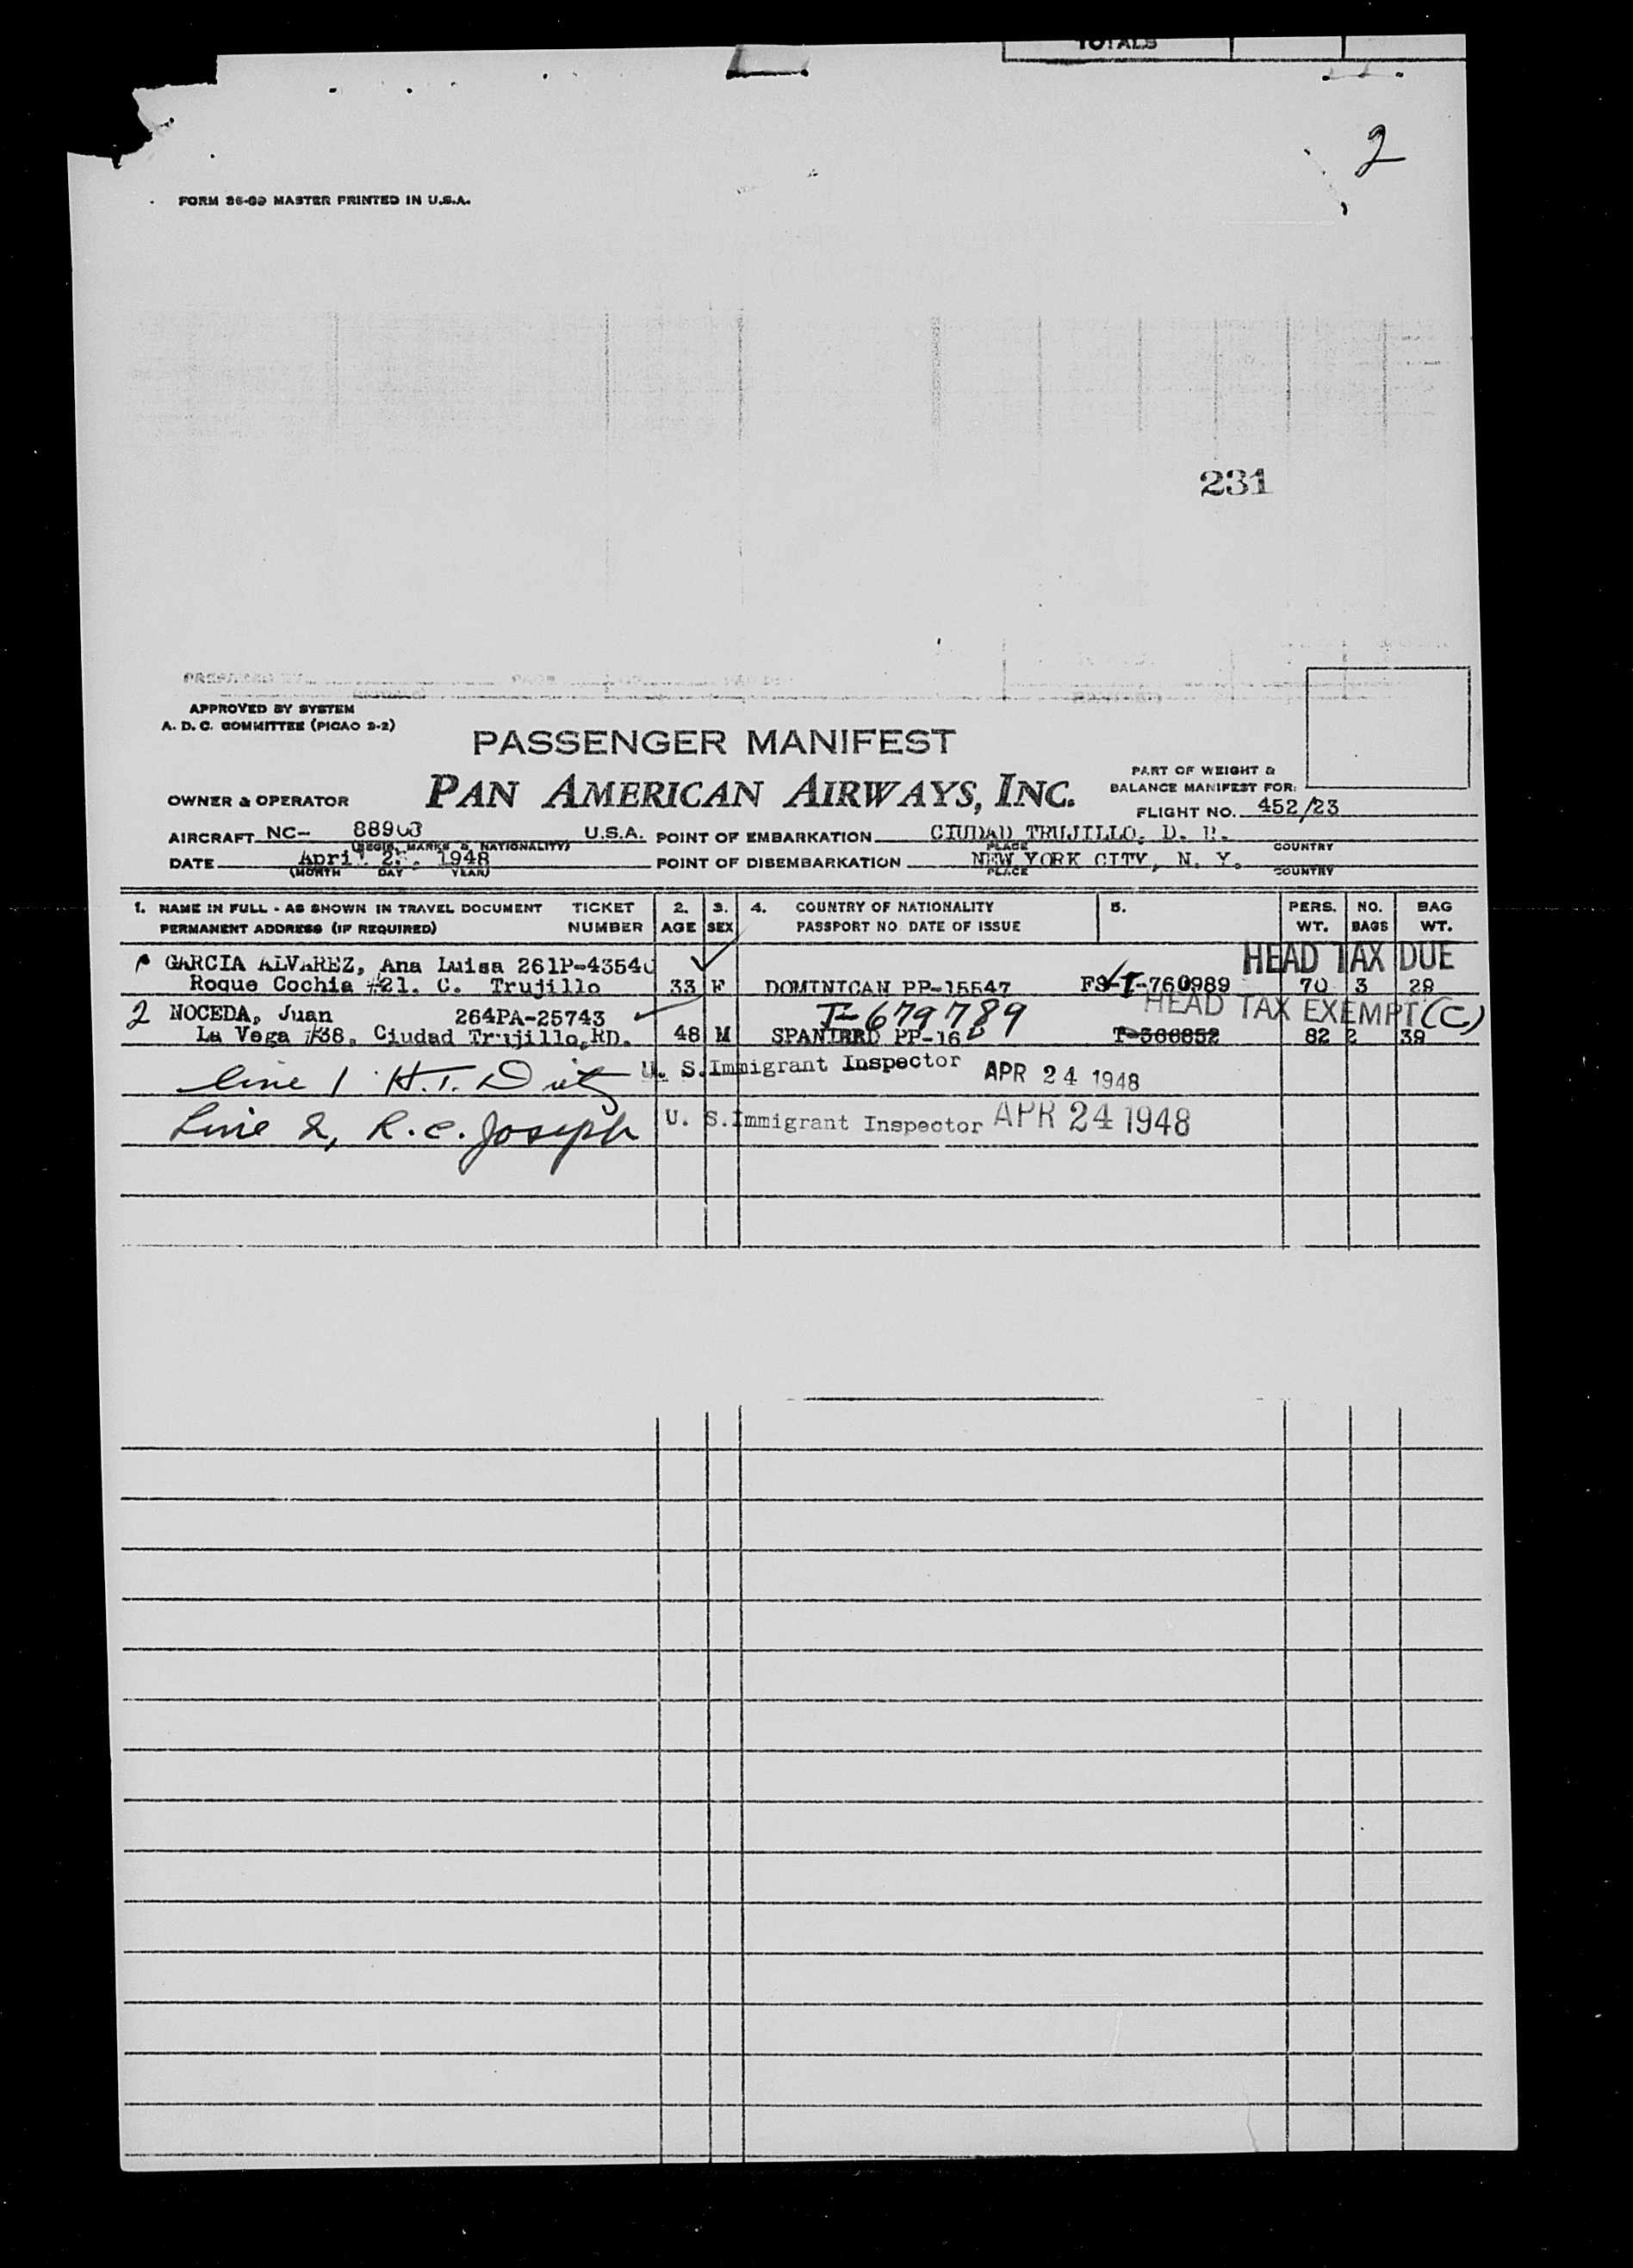 TOTALS
2
FORM 36-09 MASTER PRINTED IN U.S.A.
231
APPROVED BY SYSTEM
A. D. C. COMMITTEE (PICAO 9-2)
PASSENGER MANIFEST
OWNER & OPERATOR PAN AMERICAN AIRWAYS, INC.
PART OF WEIGHT &
BALANCE MANIFEST FOR:
FLIGHT NO. 452/23
AIRCRAFT NC- 88903 U.S.A. POINT OF EMBARKATION CIUDAD TRUJILLO, D. R.
(REGIS. MARKS & NATIONALITY) PLACE COUNTRY
DATE April 1948 POINT OF DISEMBARKATION NEW YORK CITY, N. Y.
(MONTH DAY YEAR) PLACE COUNTRY
1. NAME IN FULL - AS SHOWN IN TRAVEL DOCUMENT TICKET 2. 3. 4. COUNTRY OF NATIONALITY 5. PERS. NO. BAG
PERMANENT ADDRESS (IF REQUIRED) NUMBER AGE SEX PASSPORT NO. DATE OF ISSUE WT. BAGS WT.
HEAD TAX DUE
GARCIA ALVAREZ, Ana Luisa 261P-43540
Roque Cochia #21. C. Trujillo 33 F DOMINICAN PP-15547 FS-I-760989 70 3 29
HEAD TAX EXEMPT (C.)
2 NOCEDA, Juan 264PA-25743 I-679789
La Vega #38, Ciudad Trujillo, RD. 48 M SPANIARD PP-162 T-386852 82 2 39
Line 1 H.T. U. S. Immigrant Inspector APR 24 1948
Line 2, R.C. Joseph U. S. Immigrant Inspector APR 24 1948